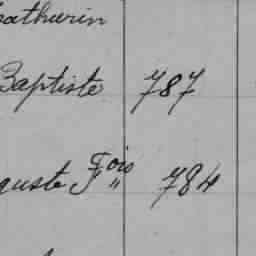 athurin
Baptiste 787
guste Fois 784